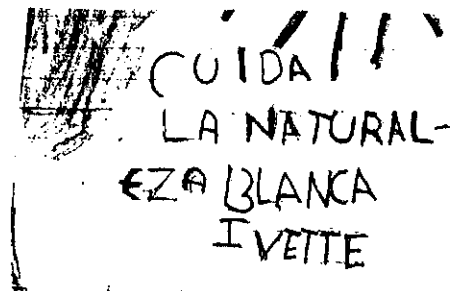 CUIDA
LA NATURAL-
EZA BLANCA
IVETTE